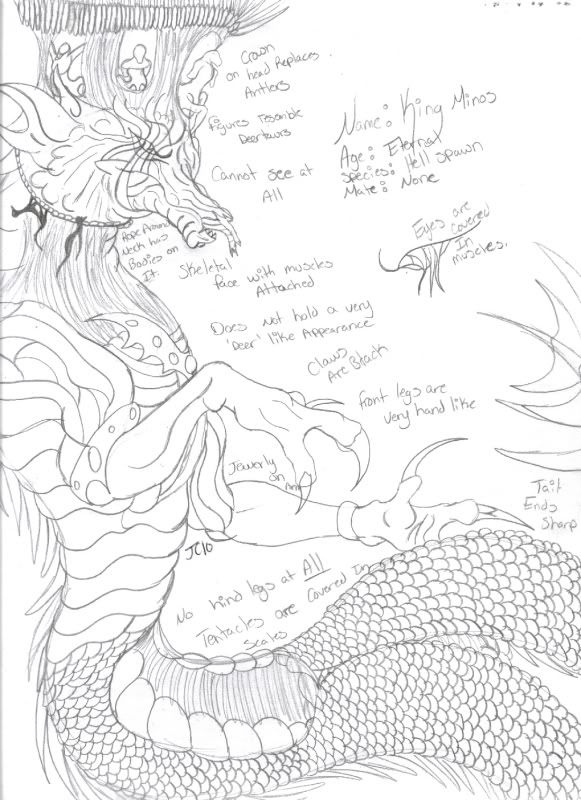 Crown
on head Replaces
Antlers
figures Tesemble
Deertaurs
Cannot see at
All
Name: King Minos
Age: Eternal
Species: Hell spawn
Mate: None
Eyes are
covered
In
muscles.
Rope Around
Neck has
Bodies on
It.
Skeletal
face with muscles
Attached
Does Not hold a very
'Deer' like Appearance
Claws
Are Black
front legs are
very hand like
Jewerly
on Arm
Tail
Ends
Sharp
JC10
No hind legs at All
Tentacles are Covered In
Scales